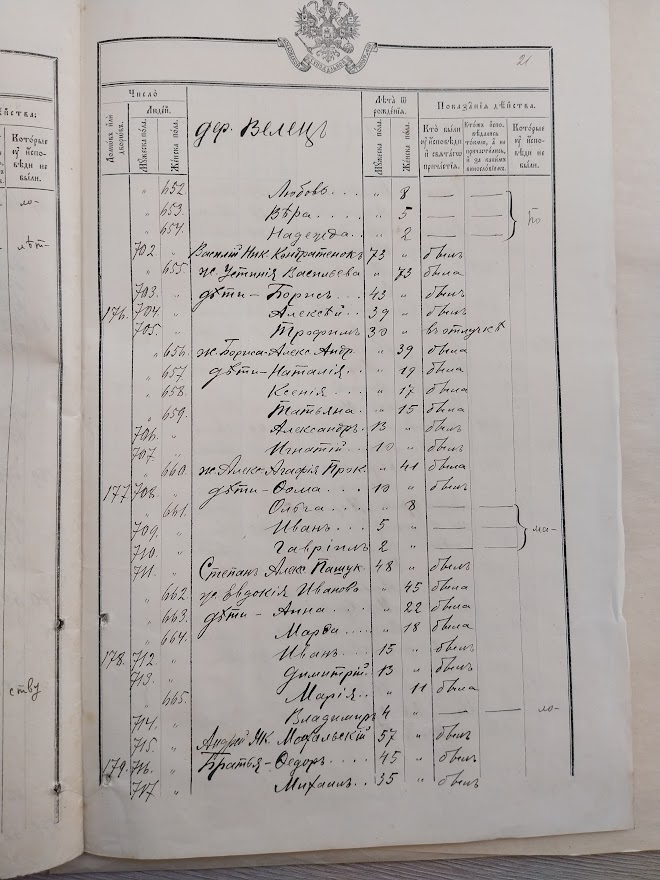 21
Число
Людей.
Домовъ или дворовъ.
Мужеска пола.
Женска пола.
дер. Велецъ
Лѣта ѿ рожденiя.
Мужеска пола.
Женска пола.
Показанiя дѣйства.
Кто были ѹ исповѣди и святагѡ причастiя.
Которые ѹ исповѣди не были.
" 652. Любовь . . . " 8 — —
" 653. Вѣра . . . . " 5 — — по
" 654. Надежда . . " 2 — —
702 " Василiй Ник. Кондратенокъ 73 " былъ
" 655. ж. Устинiя Васильева " 73 была
703. " дѣти – Борисъ . . . 43 " былъ
176. 704. " Алексѣй . . 39 " былъ
705. " Трофимъ 30 " въ отлучкѣ
" 656. ж. Бориса Алекс. Андр. " 39 была
" 657 дѣти – Наталiя . . " 19 была
" 658. Ксенiя . . " 17 была
" 659. Татьяна . . " 15 была
706. " Александръ . 13 " былъ
707. " Игнатiй . . 10 " былъ
" 660. ж. Алекс. Агафiя Прок. " 41 была
177 708. " дѣти – Ѳома . . . 10 " былъ
" 661. Ольга . . . " 8 — —
709. " Иванъ . . . 5 " — — ма-
710. " Гаврiилъ 2 " — —
711. " Степанъ Алекс. Пашук 48 " былъ
" 662 ж. Евдокiя Иванова " 45 была
" 663. дѣти – Анна . . . " 22 была
" 664. Марѳа . . . . " 18 была
178. 712. " Иванъ . . . 15 " былъ
713. " Димитрiй. 13 " былъ
" 665. Марiя . . " 11 была
714. " Владимiръ 4 " — — ло-
715. " Андрей Як. Мохальскiй 57 " былъ
179. 716. " Братья – Ѳедоръ . . . . 45 " былъ
717 " Михаилъ . . 35 " былъ
дѣйства:
Которые ѹ исповѣди не были.
ло-
лѣт-
ству